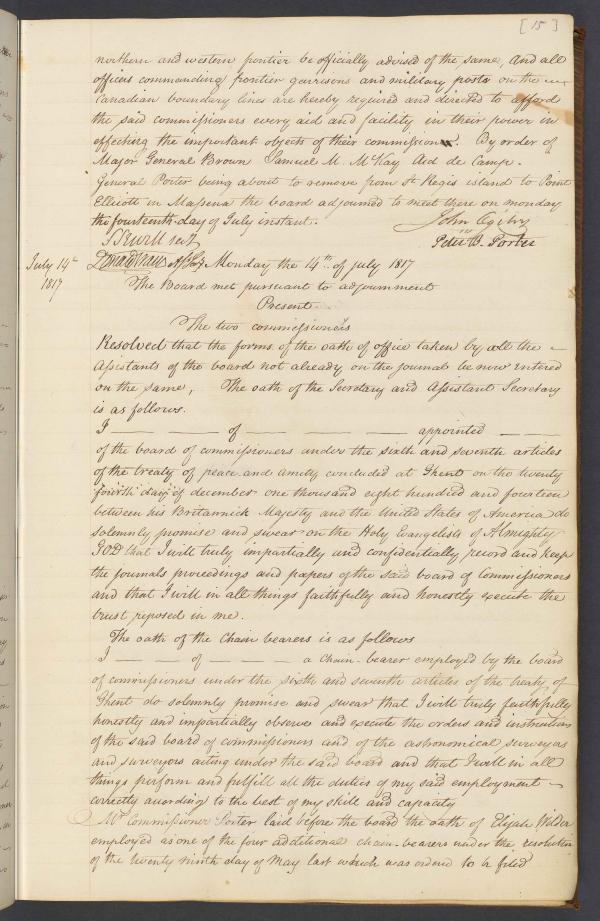 [15]
northern and western frontier be officially advised of the same, and all
officers commanding frontier garrisons and military posts on the
Canadian boundary lines are hereby required and directed to afford
the said commissioners every aid and facility in their power in
effecting the important objects of their commission. By order of
Major General Brown Samuel M. McKay Aid de Camp.
General Porter being about to remove from St Regis island to Point
Elliott in Massena the board adjourned to meet there on monday
the fourteenth day of July instant.
John Ogilvy
S Sewell secy
Peter B. Porter
D Fraser Asst Secy
July 14th
1817
Monday the 14th of july 1817
The Board met pursuant to adjournment
Present
The two commissioners
Resolved that the forms of the oath of office taken by all the
Assistants of the board not already on the journal be now entered
on the same, The oath of the Secretary and Assistant Secretary
is as follows.
I — — — of — — — — appointed — —
of the board of commissioners under the sixth and seventh articles
of the treaty of peace and amity concluded at Ghent on the twenty
fourth day of december one thousand eight hundred and fourteen
between his Britannick Majesty and the United States of America do
solemnly promise and swear on the Holy Evangelists of Almighty
GOD that I will truly impartially and confidentially record and keep
the journals proceedings and papers of the said board of Commissioners
and that I will in all things faithfully and honestly execute the
trust reposed in me.
The oath of the Chain bearers is as follows
I — — — of — — — a chain-bearer employed by the board
of commissioners under the sixth and seventh articles of the treaty of
Ghent do solemnly promise and swear that I will truly faithfully
honestly and impartially observe and execute the orders and instructions
of the said board of commissioners and of the astronomical surveyors
and surveyors acting under the said board and that I will in all
things perform and fulfill all the duties of my said employment
correctly according to the best of my skill and capacity
Mr Commissioner Porter laid before the board the oath of Elijah Wilder
employed as one of the four additional chain-bearers under the resolution
of the twenty ninth day of May last which was ordered to be filed